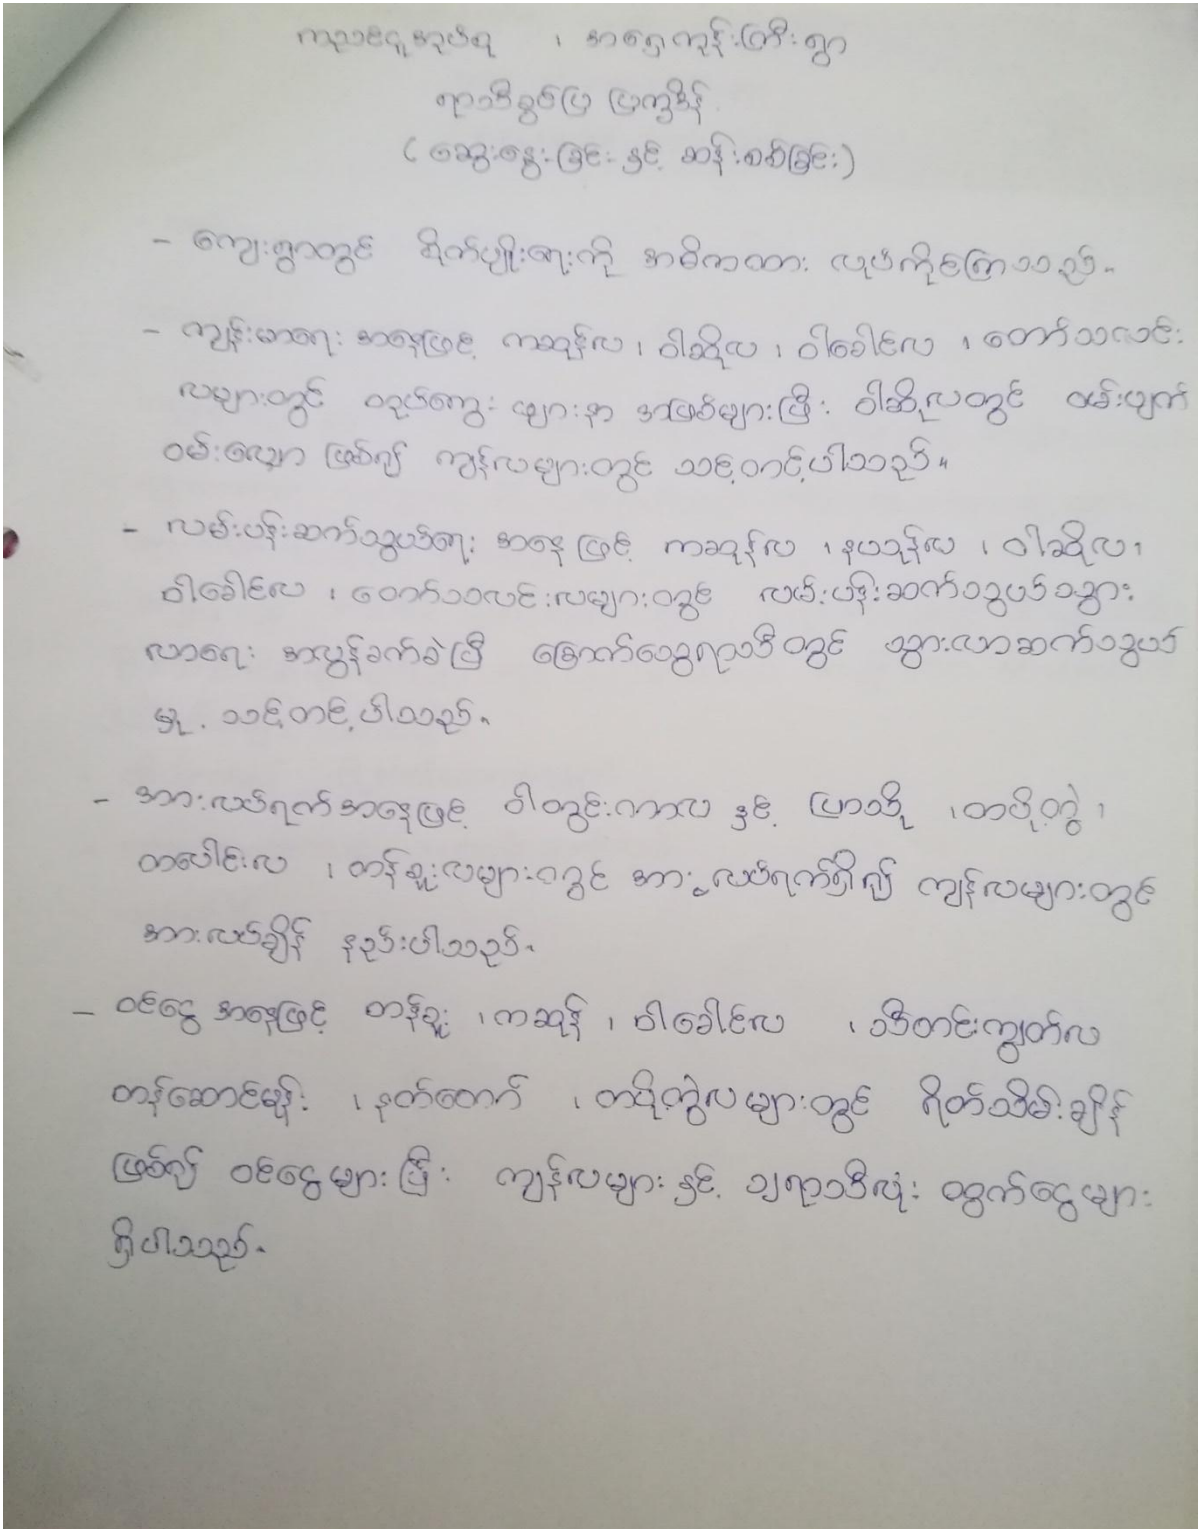 ကုသငူအုပ်စု ၊ အရှေ့ကုန်းကြီးရွာ
ရာသီခွင်ပြ ပြက္ခဒိန်
( ဆွေးနွေးခြင်း နှင့် ဆန်းစစ်ခြင်း )
- ကျေးရွာတွင် စိုက်ပျိုးရေးကို အဓိကထား လုပ်ကိုင်ကြသည်။
- ကျန်းမာရေး အနေဖြင့် ကဆုန်လ ၊ ဝါဆိုလ ၊ ဝါခေါင်လ ၊ တော်သလင်း
လများတွင် တုပ်ကွေး များနာ အဖြစ်များပြီး ဝါဆိုလတွင် ဝမ်းပျက်
ဝမ်းလျှော ဖြစ်၍ ကျန်လများတွင် သင့်တင့်ပါသည်။
- လမ်းပန်းဆက်သွယ်ရေး အနေ ဖြင့် ကဆုန်လ ၊ နယုန်လ ၊ ဝါဆိုလ ၊
ဝါခေါင်လ ၊ တော်သလင်းလများတွင် လမ်းပန်းဆက်သွယ်သွား
လာရေး အလွန်ခက်ခဲပြီး ခြောက်သွေ့ရာသီတွင် သွားလာဆက်သွယ်
မှု သင့်တင့်ပါသည်။
- အားလပ်ရက်အနေဖြင့် ဝါတွင်းကာလ နှင့် ပြာသို ၊ တပို့တွဲ ၊
တပေါင်းလ ၊ တန်ခူးလများတွင် အားလပ်ရက်ရှိ၍ ကျန်လများတွင်
အားလပ်ချိန် နည်းပါသည်။
- ဝင်ငွေ အနေဖြင့် တန်ခူး ၊ ကဆုန် ၊ ဝါခေါင်လ ၊ သီတင်းကျွတ်လ
တန်ဆောင်မုန်း ၊ နတ်တော် ၊ တပို့တွဲလများတွင် ရိတ်သိမ်းချိန်
ဖြစ်၍ ဝင်ငွေများပြီး ကျန်လများ နှင့် ၃ရာသီလုံး ထွက်ငွေများ
ရှိပါသည်။